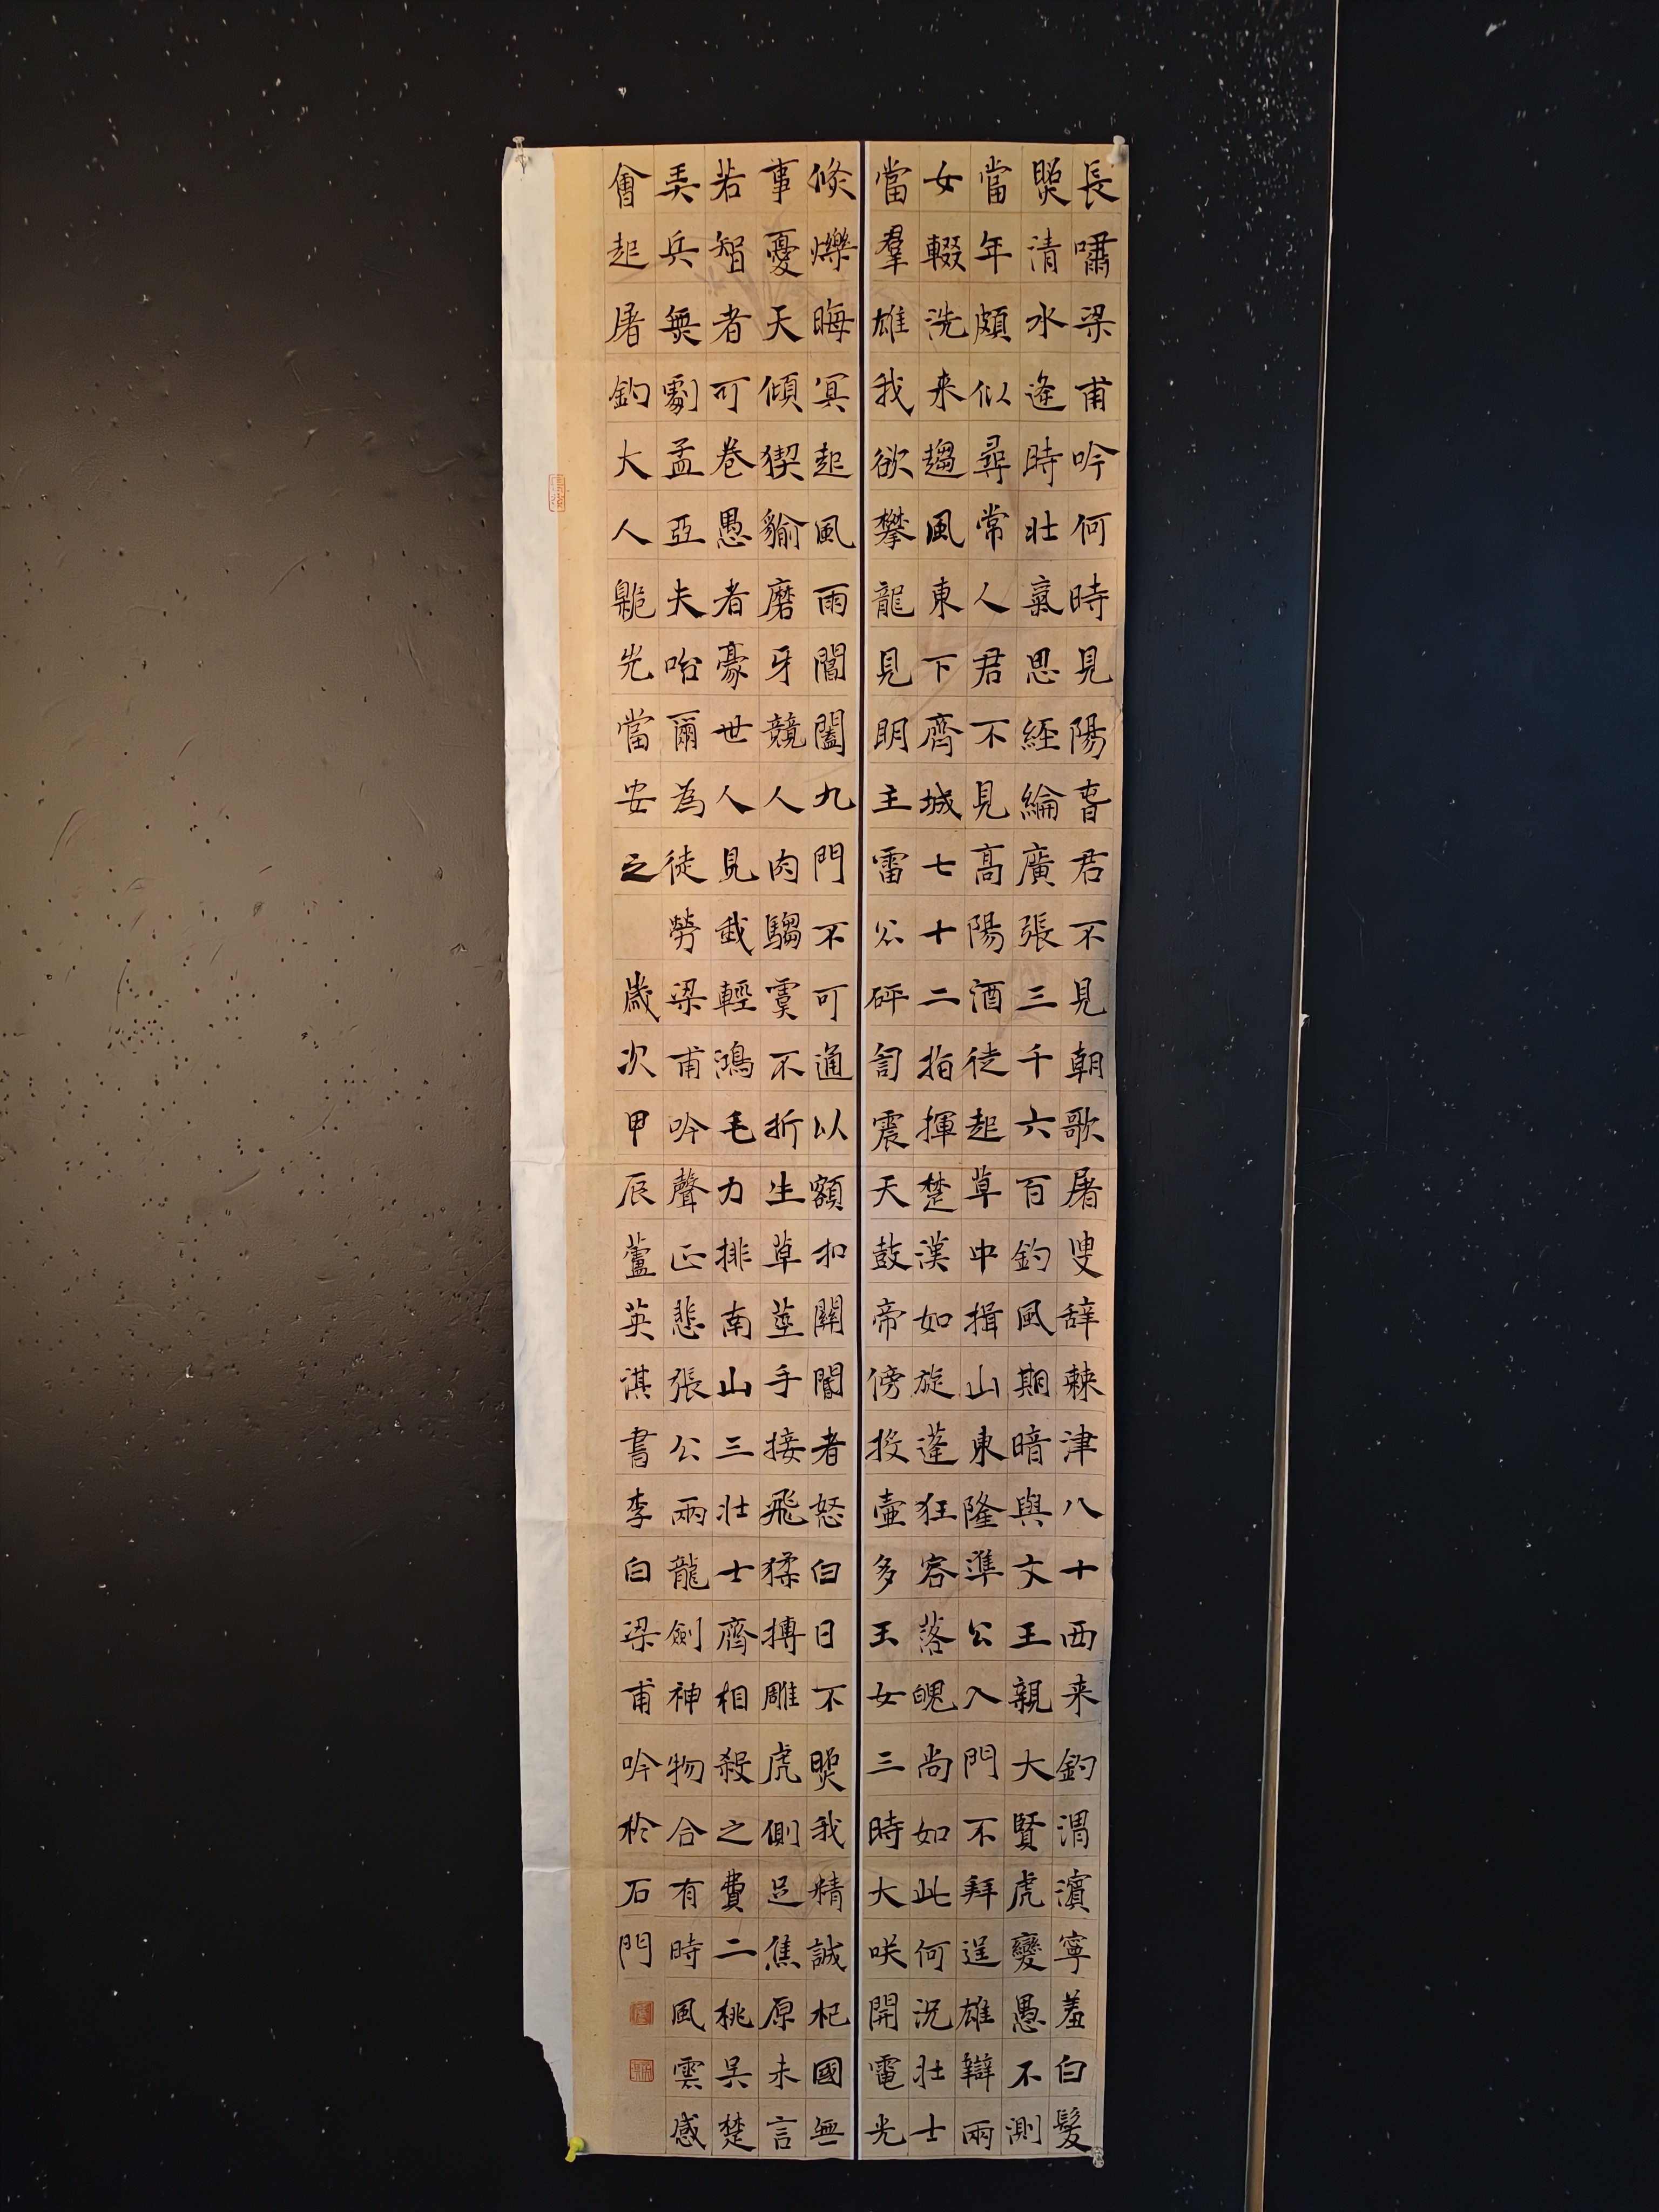 長嘯梁甫吟何時見陽春君不見朝歌屠叟辞棘津八十西来釣渭濱寧羞白髮
照清水逢時壯氣思經綸廣張三千六百釣風期暗與文王親大賢虎變愚不測
當年頗似尋常人君不見高陽酒徒起草中揖山東隆準公入門不拜逞雄辯兩
女輟洗来趨風東下齊城七十二指揮楚漢如旋蓬狂客落魄尚如此何況壯士
當羣雄我欲攀龍見明主雷公砰訇震天鼓帝傍投壺多玉女三時大咲開電光
倏爍晦冥起風雨閶闔九門不可通以額扣關閽者怒白日不照我精誠杞國無
事憂天傾猰貐磨牙競人肉騶虞不折生草莖手接飛猱搏雕虎側足焦原未言
苦智者可卷愚者豪世人見我輕鴻毛力排南山三壯士齊相殺之費二桃吳楚
弄兵無劇孟亞夫咍爾為徒勞梁甫吟聲正悲張公兩龍劍神物合有時風雲感
會起屠釣大人臲屼當安之
歲次甲辰蘆英淇書李白梁甫吟於石門